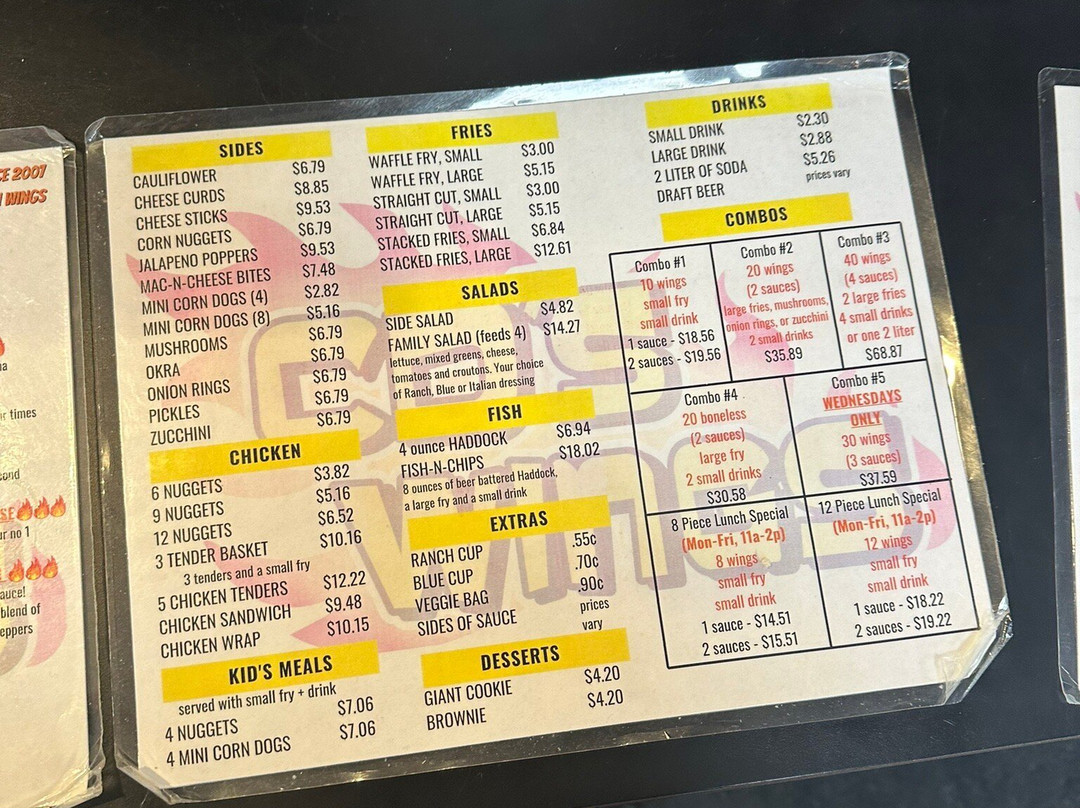 CE 2007
WINGS
ir times
SE
ur no 1
auce!
blend of
eppers
SIDES
CAULIFLOWER $6.79
CHEESE CURDS $8.85
CHEESE STICKS $9.53
CORN NUGGETS $6.79
JALAPENO POPPERS $9.53
MAC-N-CHEESE BITES $7.48
MINI CORN DOGS (4) $2.82
MINI CORN DOGS (8) $5.16
MUSHROOMS $6.79
OKRA $6.79
ONION RINGS $6.79
PICKLES $6.79
ZUCCHINI $6.79
CHICKEN
6 NUGGETS $3.82
9 NUGGETS $5.16
12 NUGGETS $6.52
3 TENDER BASKET $10.16
3 tenders and a small fry
5 CHICKEN TENDERS $12.22
CHICKEN SANDWICH $9.48
CHICKEN WRAP $10.15
KID'S MEALS
served with small fry + drink
4 NUGGETS $7.06
4 MINI CORN DOGS $7.06
FRIES
WAFFLE FRY, SMALL $3.00
WAFFLE FRY, LARGE $5.15
STRAIGHT CUT, SMALL $3.00
STRAIGHT CUT, LARGE $5.15
STACKED FRIES, SMALL $6.84
STACKED FRIES, LARGE $12.61
SALADS
SIDE SALAD $4.82
FAMILY SALAD (feeds 4) $14.27
lettuce, mixed greens, cheese,
tomatoes and croutons. Your choice
of Ranch, Blue or Italian dressing
FISH
4 ounce HADDOCK $6.94
FISH-N-CHIPS $18.02
8 ounces of beer battered Haddock,
a large fry and a small drink
EXTRAS
RANCH CUP .55¢
BLUE CUP .70¢
VEGGIE BAG .90¢
SIDES OF SAUCE prices
vary
DESSERTS
GIANT COOKIE $4.20
BROWNIE $4.20
DRINKS
SMALL DRINK $2.30
LARGE DRINK $2.88
2 LITER OF SODA $5.26
DRAFT BEER prices vary
COMBOS
Combo #1
10 wings
small fry
small drink
1 sauce - $18.56
2 sauces - $19.56
Combo #2
20 wings
(2 sauces)
large fries, mushrooms,
onion rings, or zucchini
2 small drinks
$35.89
Combo #3
40 wings
(4 sauces)
2 large fries
4 small drinks
or one 2 liter
$68.87
Combo #4
20 boneless
(2 sauces)
large fry
2 small drinks
$30.58
Combo #5
WEDNESDAYS
ONLY
30 wings
(3 sauces)
$37.59
8 Piece Lunch Special
(Mon-Fri, 11a-2p)
8 wings
small fry
small drink
1 sauce - $14.51
2 sauces - $15.51
12 Piece Lunch Special
(Mon-Fri, 11a-2p)
12 wings
small fry
small drink
1 sauce - $18.22
2 sauces - $19.22
CD'S
WINGS